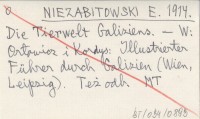 NIEZABITOWSKI E. 1914.
Die Tierwelt Galiziens. – W:
Orłowicz i Kordys. Illustrierter
Führer durch Galizien (Wien,
Leipzig). Też odb. MT